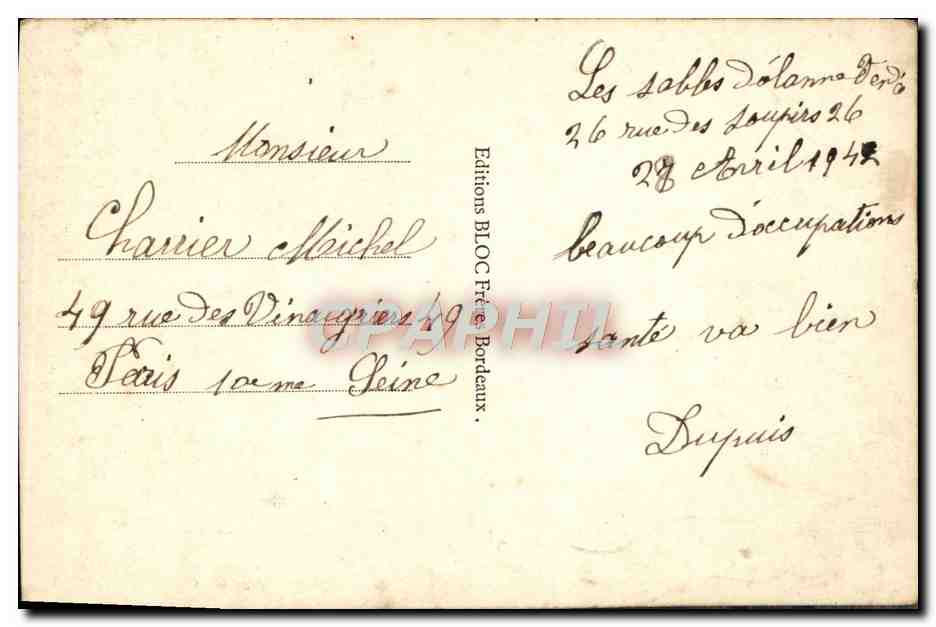 Monsieur
Charrier Michel
49 rue des Vinaigriers 49
Paris 10eme Seine
Editions BLOC Frères Bordeaux.
Les sables d'olanne
26 rue des soupirs 26
Avril 1942
beaucoup d'occupations
santé va bien
Dupuis
CPAPHIL